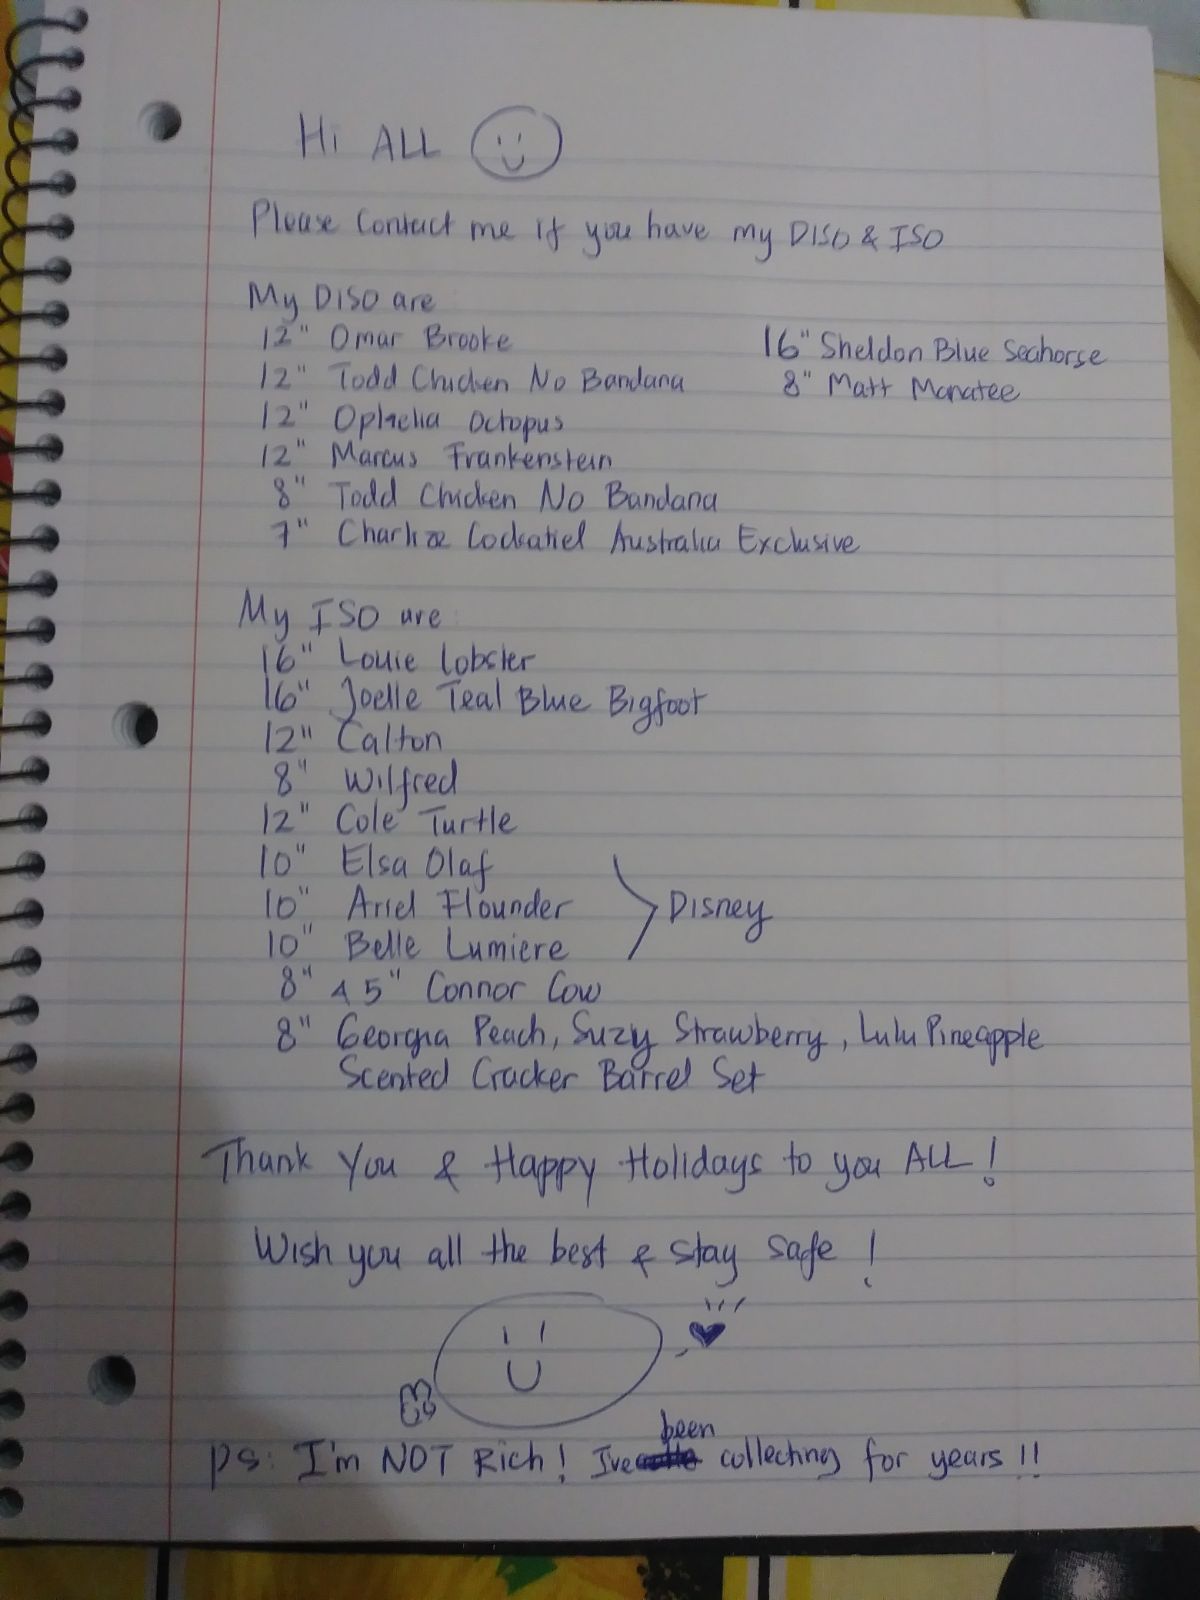 Hi ALL
Please Contact me if you have my DISO & ISO
My DISO are
12" Omar Brooke
12" Todd Chicken No Bandana
12" Ophelia Octopus
12" Marcus Frankenstein
8" Todd Chicken No Bandana
7" Charlize Cockatiel Australia Exclusive
16" Sheldon Blue Seahorse
8" Matt Manatee
My ISO are:
16" Louie Lobster
16" Joelle Teal Blue Bigfoot
12" Calton
8" Wilfred
12" Cole Turtle
10" Elsa Olaf
10" Ariel Flounder
10" Belle Lumiere
Disney
8" & 5" Connor Cow
8" Georgia Peach, Suzy Strawberry, Lulu Pineapple
Scented Cracker Barrel Set
Thank You & Happy Holidays to you ALL!
Wish you all the best & stay safe!
Ps: I'm NOT Rich! Ive been collecting for years!!